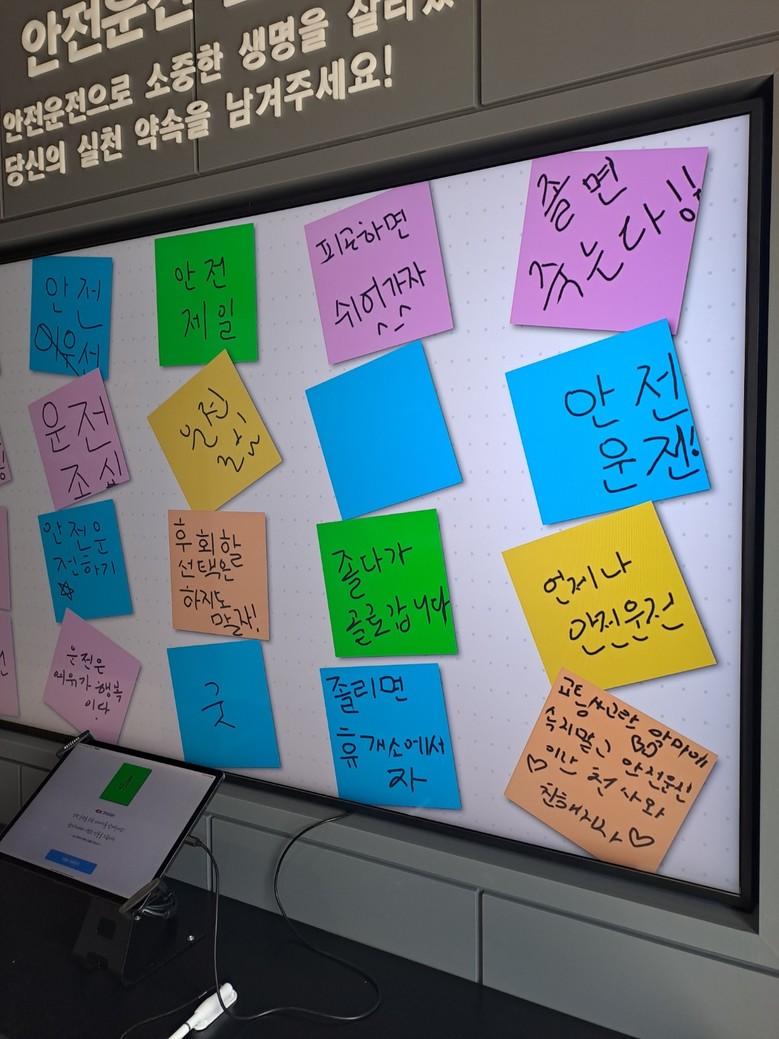 안전운전
안전운전으로 소중한 생명을 살리
당신의 실천 약속을 남겨주세요!
안전
제일
피곤하면
쉬어가자
^^
졸면
죽는다!!
안전
운전
조심
안전
운전!
안전운
전하기
후회할
선택은
하지도
말자!
졸다가
골로갑니다
언제나
안전운전
운전은
여유가 행복
이다
굿
졸리면
휴게소에서
자
교통사고란 악마에
속지말고 안전운전
이란 천사와
친해지자♡